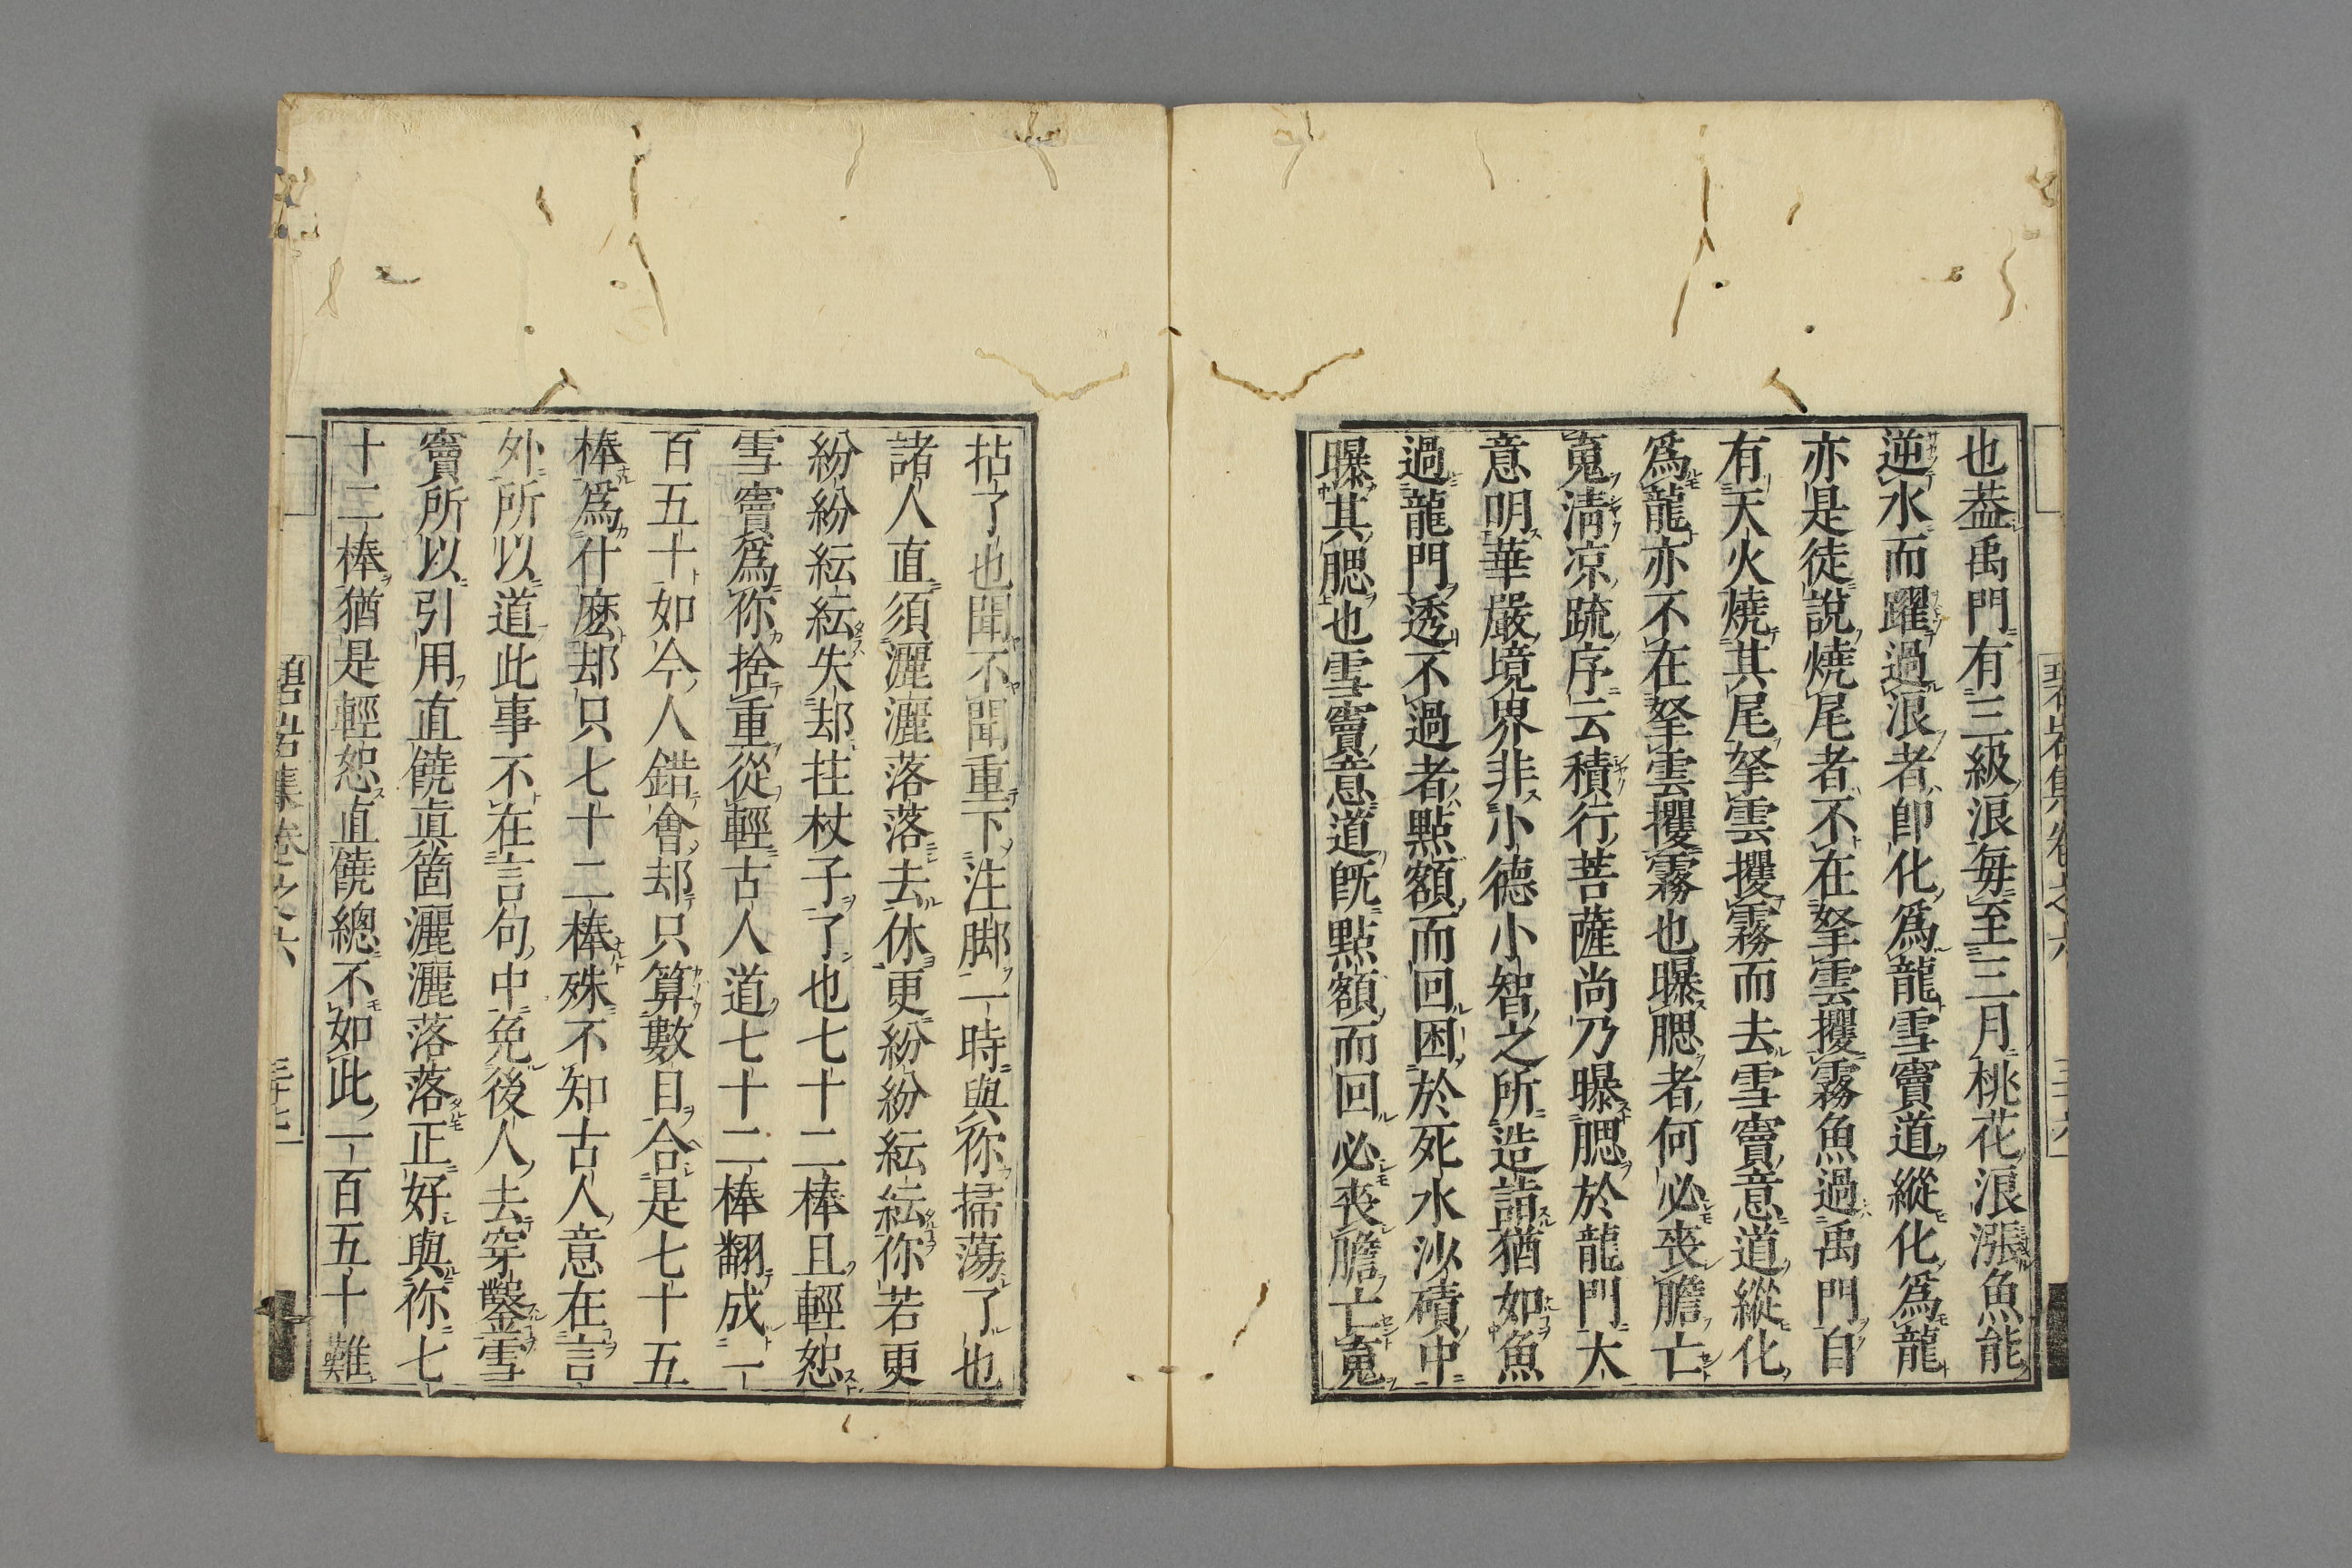 也葢禹門有三級浪毎至三月桃花浪漲魚能
逆水而躍過浪者卽化爲龍雪竇道縱化爲龍
亦是徒說燒尾者不在拏雲攫霧魚過禹門自
有天火燒其尾拏雲攫霧而去雪竇意道縱化
爲龍亦不在拏雲攫霧也曝腮者何必喪膽亡
䰟淸凉䟽序云積行菩薩尚乃曝腮於龍門太
意明華嚴境界非小德小智之所造詣猶如魚
過龍門透不過者點額而回困於死水沙磧中
曝其腮也雪竇意道旣點額而回必喪膽亡䰟
拈了也聞不聞重下注脚一時與你掃蕩了也
諸人直須灑灑落落去休更紛紛紜紜你若更
紛紛紜紜失却拄杖子了也七十二棒且輕恕
雪竇爲你捨重從輕古人道七十二棒翻成一
百五十如今人錯會却只算數目合是七十五
棒爲什麽却只七十二棒殊不知古人意在言
外所以道此事不在言句中免後人去穿鑿雪
竇所以引用直饒眞箇灑灑落落正好與你七
十二棒猶是輕恕直饒總不如此一百五十難
碧岩集卷之六
三十七